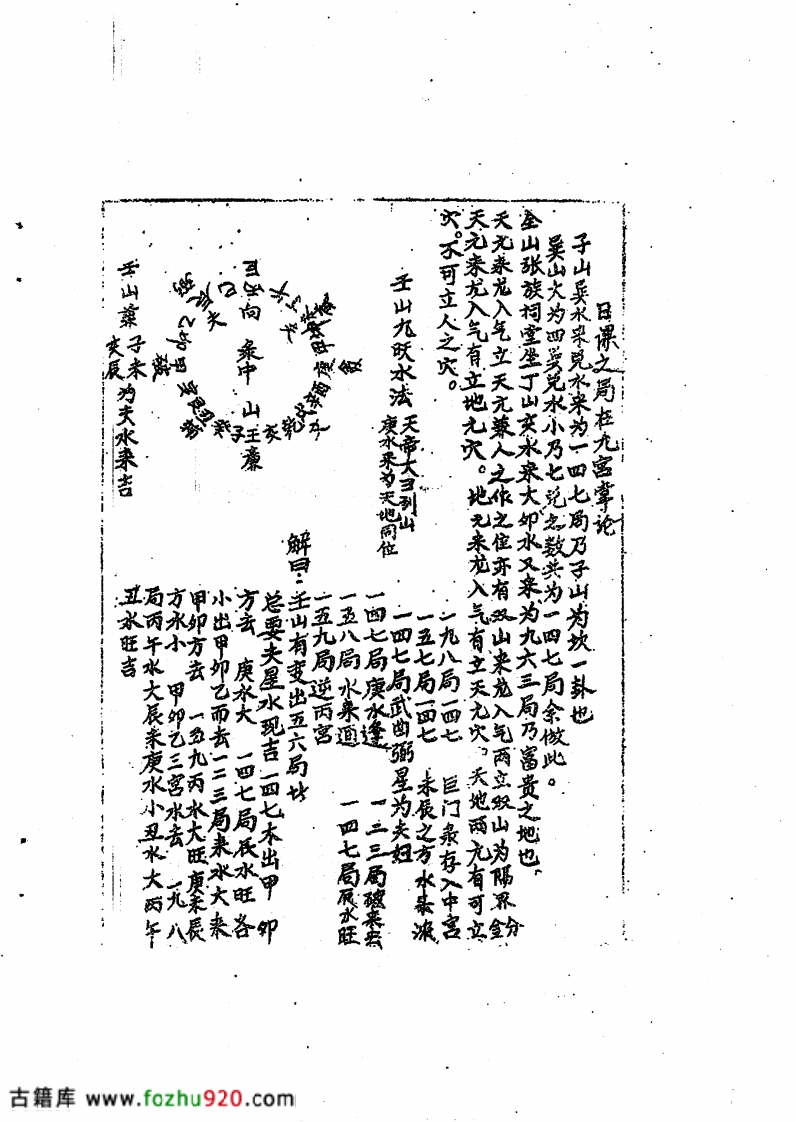 日课之局在九宫掌论
子山巽水来兑水来为一四七局乃子山为坎一卦也
巽山大为四巽兑水小乃七兑之数共为一四七局余仿此。
全山张族祠堂坐丁山亥水来大卯水又来为九六三局乃富贵之地也。
天元来龙入气立天元兼人之作之位亦有双山来龙入气两立双山为阳界分金
天元来龙入气有立地元穴。地元来龙入气有立天元穴。天地两元有可立
穴。不可立人之穴。
壬山九跃水法
天帝大刀列山
庚水来为天地同位
向
中
山
壬
廉
壬山兼子未
亥辰为夫水来吉
一九八局一四七 巨门存入中宫
一五七局一四七 未辰之方水流
一四七局武曲弼星为夫妇
一四七局庚水逢 一二三局破来去
一五八局水来逆 一四七局辰水旺
一五九局逆丙宫
解曰：壬山有变出五六局
总要夫星水现吉一四七木出甲卯
方去 庚水大 一四七局辰水旺各
小出甲卯乙而去一二三局来水大来
甲卯方去 一五九丙水大旺庚未辰
方水小 甲卯乙三宫水去 一九八
局丙午水大辰来庚水小丑水大丙午
丑水旺吉
古籍库 www.fozhu920.com